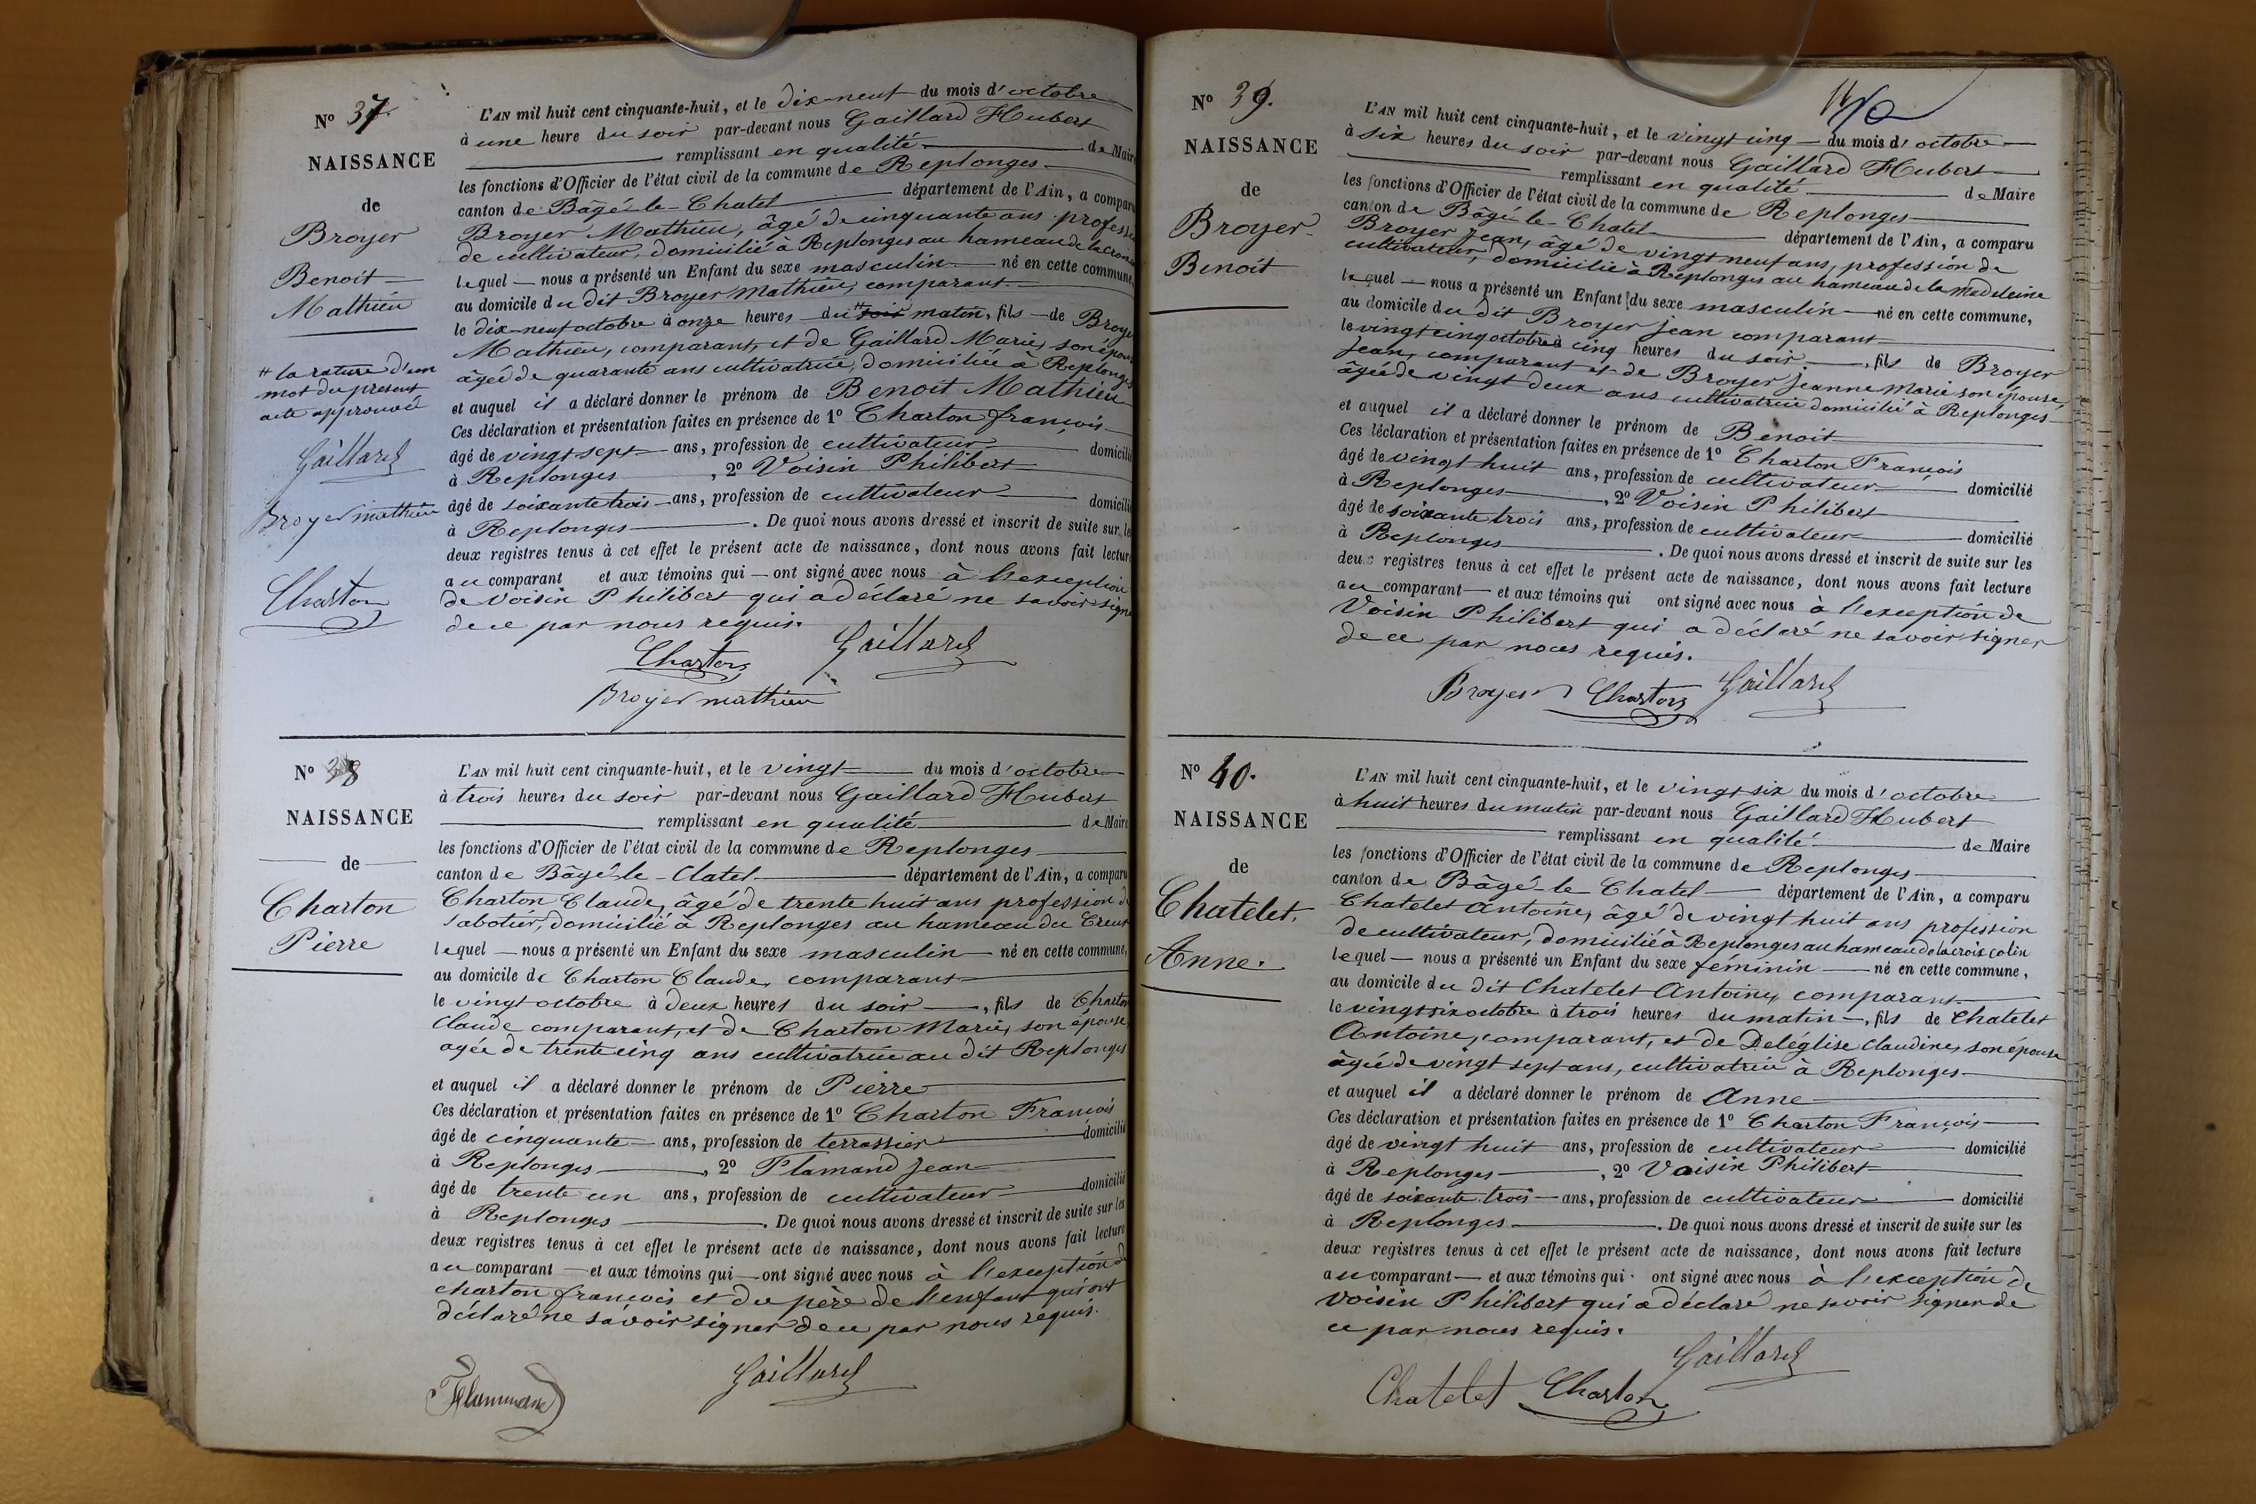 N° 37.
NAISSANCE
de
Broyer
Benoit
Mathieu
# la rature d'un
mot du present
acte approuvée
Gaillard
Broyer mathieu
Charton
L'AN mil huit cent cinquante-huit, et le dix-neuf du mois d'octobre
à une heure du soir par-devant nous Gaillard Hubert
remplissant en qualité de Maire
les fonctions d'Officier de l'état civil de la commune de Replonges
canton de Bâgé-le-Chatel département de l'Ain, a comparu
Broyer Mathieu, âgé de cinquante ans profession
de cultivateur, domicilié à Replonges au hameau de la
lequel nous a présenté un Enfant du sexe masculin né en cette commune,
au domicile du dit Broyer Mathieu, comparant
le dix-neuf octobre à onze heures du # soir matin, fils de Broyer
Mathieu, comparant, et de Gaillard Marie, son épouse
âgée de quarante ans cultivatrice, domiciliée à Replonges
et auquel il a déclaré donner le prénom de Benoit Mathieu
Ces déclaration et présentation faites en présence de 1° Charton françois
âgé de vingt sept ans, profession de cultivateur domicilié
à Replonges, 2° Voisin Philibert
âgé de soixante trois ans, profession de cultivateur domicilié
à Replonges. De quoi nous avons dressé et inscrit de suite sur les
deux registres tenus à cet effet le présent acte de naissance, dont nous avons fait lecture
au comparant et aux témoins qui ont signé avec nous à l'exception
de Voisin Philibert qui a déclaré ne savoir signer
de ce par nous requis.
Charton Gaillard
Broyer mathieu
N° 38
NAISSANCE
de
Charton
Pierre
L'AN mil huit cent cinquante-huit, et le vingt du mois d'octobre
à trois heures du soir par-devant nous Gaillard Hubert
remplissant en qualité de Maire
les fonctions d'Officier de l'état civil de la commune de Replonges
canton de Bâgé-le-Clatel département de l'Ain, a comparu
Charton Claude, âgé de trente huit ans profession de
sabotier, domicilié à Replonges au hameau du Creux
lequel nous a présenté un Enfant du sexe masculin né en cette commune,
au domicile de Charton Claude, comparant
le vingt octobre à deux heures du soir, fils de Charton
Claude comparant, et de Charton Marie, son épouse
agée de trente cinq ans cultivatrice au dit Replonges
et auquel il a déclaré donner le prénom de Pierre
Ces déclaration et présentation faites en présence de 1° Charton François
âgé de cinquante ans, profession de terrassier domicilié
à Replonges, 2° Flamand Jean
âgé de trente un ans, profession de cultivateur domicilié
à Replonges. De quoi nous avons dressé et inscrit de suite sur les
deux registres tenus à cet effet le présent acte de naissance, dont nous avons fait lecture
au comparant et aux témoins qui ont signé avec nous à l'exception de
charton françois et du père de l'enfant qui ont
déclaré ne savoir signer de ce par nous requis.
Flammand Gaillard
N° 39.
NAISSANCE
de
Broyer
Benoit
L'AN mil huit cent cinquante-huit, et le vingt cinq du mois d'octobre
à six heures du soir par-devant nous Gaillard Hubert
remplissant en qualité de Maire
les fonctions d'Officier de l'état civil de la commune de Replonges
canton de Bâgé-le-Chatel département de l'Ain, a comparu
Broyer Jean, âgé de vingt neuf ans, profession de
cultivateur, domicilié à Replonges au hameau de la Madeleine
lequel nous a présenté un Enfant du sexe masculin né en cette commune,
au domicile du dit Broyer Jean comparant
le vingt cinq octobre à cinq heures du soir, fils de Broyer
Jean, comparant et de Broyer Jeanne Marie son épouse,
âgée de vingt deux ans cultivatrice domicilié à Replonges
et auquel il a déclaré donner le prénom de Benoit
Ces déclaration et présentation faites en présence de 1° Charton François
âgé de vingt huit ans, profession de cultivateur domicilié
à Replonges, 2° Voisin Philibert
âgé de soixante trois ans, profession de cultivateur domicilié
à Replonges. De quoi nous avons dressé et inscrit de suite sur les
deux registres tenus à cet effet le présent acte de naissance, dont nous avons fait lecture
au comparant et aux témoins qui ont signé avec nous à l'exception de
Voisin Philibert qui a déclaré ne savoir signer
de ce par nous requis.
Broyer Charton Gaillard
N° 40.
NAISSANCE
de
Chatelet.
Anne.
L'AN mil huit cent cinquante-huit, et le vingt six du mois d'octobre
à huit heures du matin par-devant nous Gaillard Hubert
remplissant en qualité de Maire
les fonctions d'Officier de l'état civil de la commune de Replonges
canton de Bâgé-le Chatel département de l'Ain, a comparu
Chatelet Antoine, âgé de vingt huit ans profession
de cultivateur, domicilié à Replonges au hameau de la croix colin
lequel nous a présenté un Enfant du sexe féminin né en cette commune,
au domicile du dit Chatelet Antoine, comparant
le vingt six octobre à trois heures du matin, fils de Chatelet
Antoine, comparant, et de Deleglise Claudine, son épouse
âgée de vingt sept ans, cultivatrice à Replonges
et auquel il a déclaré donner le prénom de Anne
Ces déclaration et présentation faites en présence de 1° Charton François
âgé de vingt huit ans, profession de cultivateur domicilié
à Replonges, 2° Voisin Philibert
âgé de soixante trois ans, profession de cultivateur domicilié
à Replonges. De quoi nous avons dressé et inscrit de suite sur les
deux registres tenus à cet effet le présent acte de naissance, dont nous avons fait lecture
au comparant et aux témoins qui ont signé avec nous à l'exception de
Voisin Philibert qui a déclaré ne savoir signer de
ce par nous requis.
Chatelet Charton Gaillard